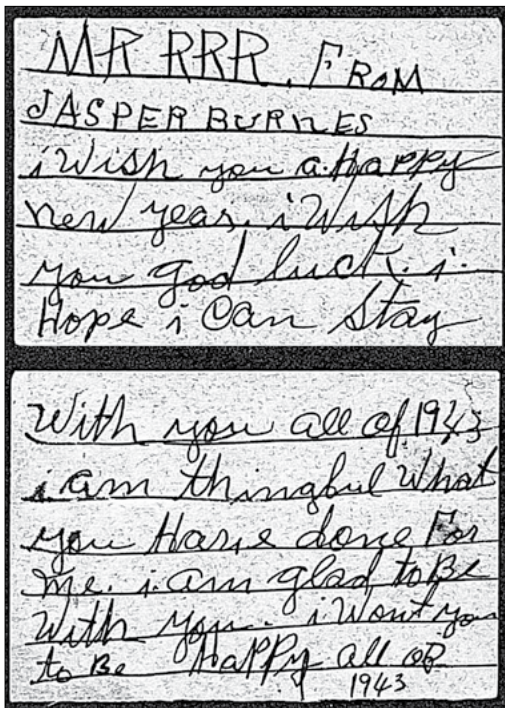 MR RRR. FROM
JASPER BURNES
i Wish you a Happy
new year. i Wish
you god luck. i.
Hope i Can Stay
With you all of 1943
i am thingful What
you Have done For
me. i am glad to Be
With you. i Wont you
to Be Happy all of
1943